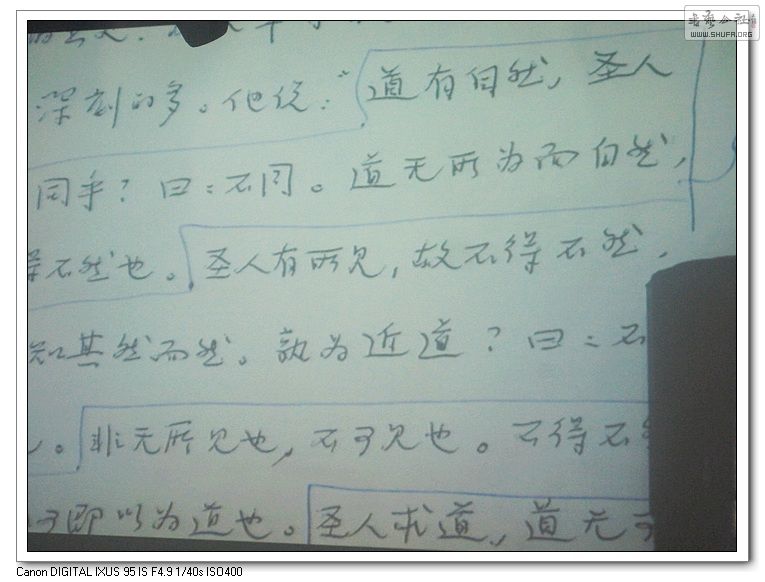 深刻的多。他说："道有自然，圣人
同乎？曰：不同。道无所为而自然，
得不然也。圣人有所见，故不得不然，
知其然而然。孰为近道？曰：不
。非无所见也，不可见也。不得不
可即以为道也。圣人求道，道无可
书艺公社
WWW.SHUFA.ORG
Canon DIGITAL IXUS 95 IS F4.9 1/40s ISO400